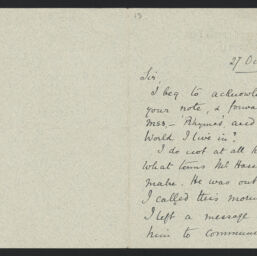 13
27 Oc
Sir,
I beg to acknowle
your note, & forwa
mss. – 'Rhymes', and
World I live in?
I do not at all k
what terms Mr Has
make. He was out
I called this morn
I left a message
him to commun